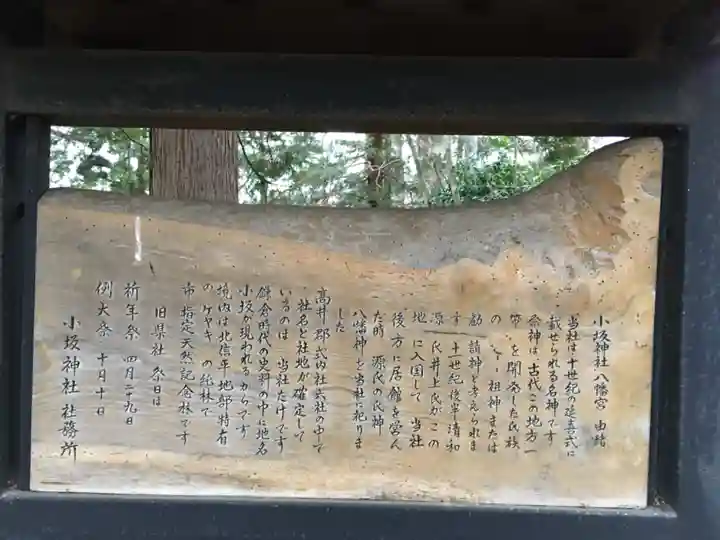 小坂神社八幡宮 由緒
当社は十世紀の延喜式に
載せられる名神です
祭神は、古代この地方一
帯を開発した氏族
の 祖神または
勧請神と考えられま
す 十一世紀後半清和
源氏井上氏がこの
地に入国して 当社
後方に居館を営ん
だ時 源氏の氏神
八幡神を当社に祀りま
した
高井郡式内社式社の中で
社名と社地が確定して
いるのは 当社だけです
鎌倉時代の史料の中に地名
小坂が現われるからです
境内は北信平地部特有
の ケヤキ の純林で
市指定天然記念林です
旧県社 祭日は
祈年祭 四月二十九日
例大祭 十月十日
小坂神社 社務所